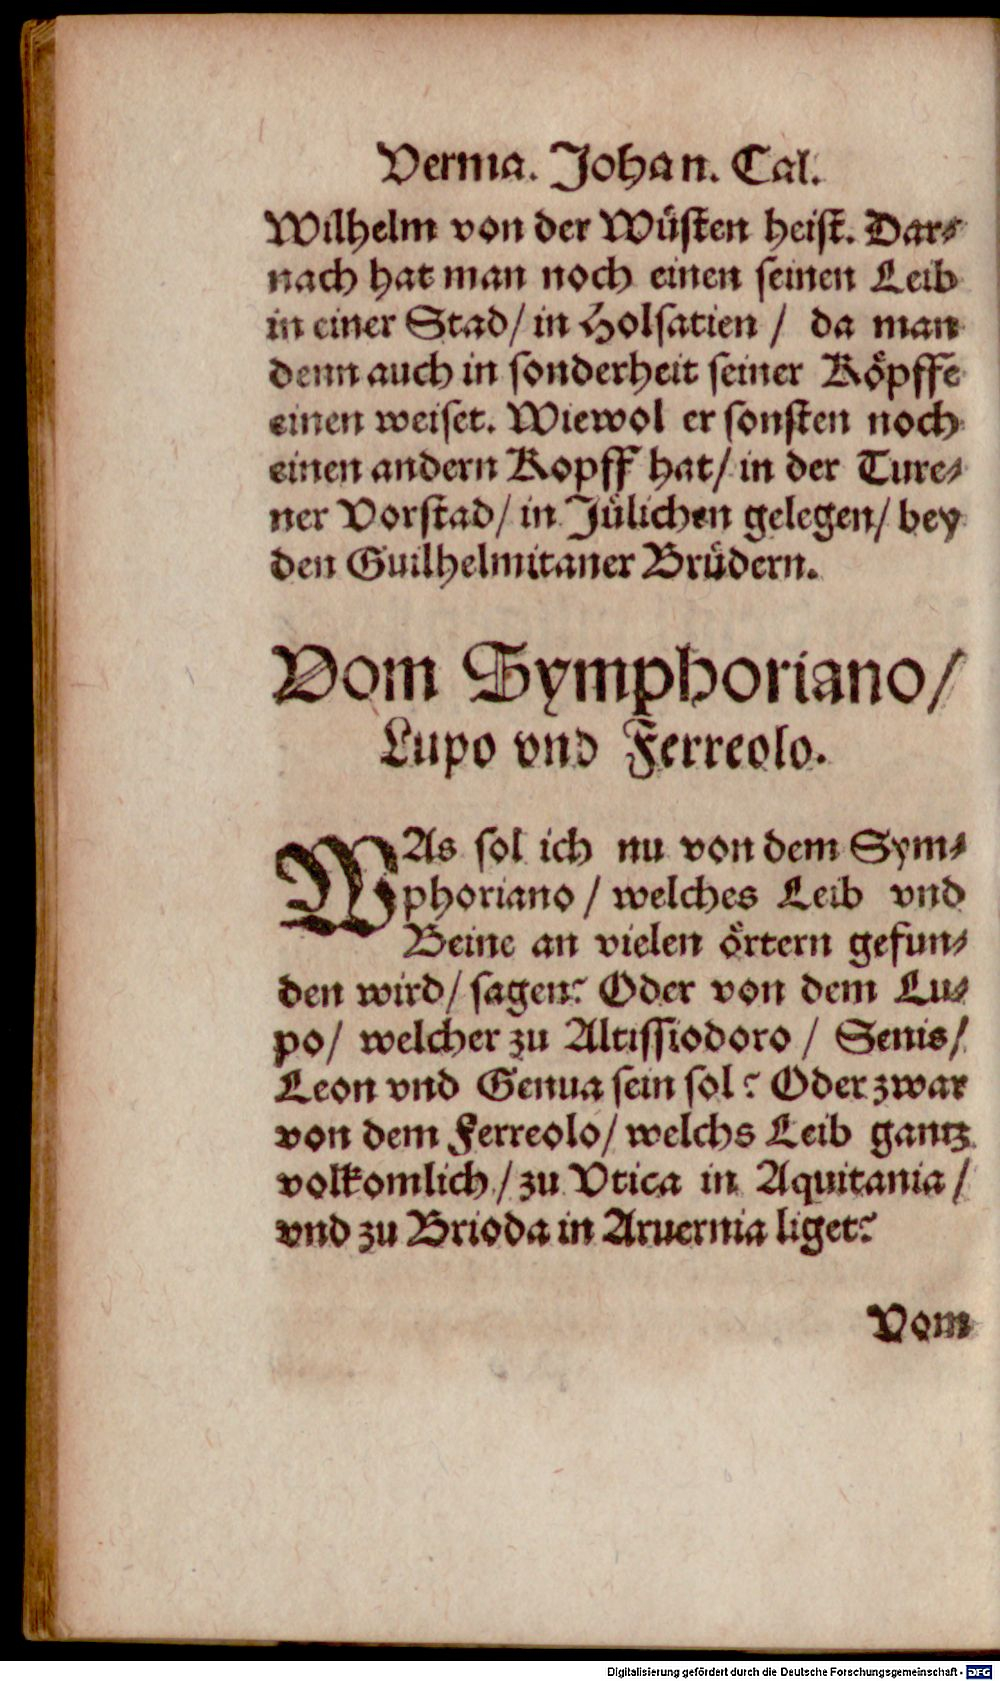 Verma. Johan. Cal.
Wilhelm von der Wüsten heist. Dar⸗
nach hat man noch einen seinen Leib
in einer Stad/ in Holsatien / da man
denn auch in sonderheit seiner Köpffe
einen weiset. Wiewol er sonsten noch
einen andern Kopff hat/ in der Ture⸗
ner Vorstad/ in Jülichen gelegen/ bey
den Guilhelmitaner Brüdern.
Vom Symphoriano/
Lupo vnd Ferreolo.
WAs sol ich nu von dem Sym⸗
phoriano / welches Leib vnd
Beine an vielen örtern gefun⸗
den wird/ sagen? Oder von dem Lu⸗
po/ welcher zu Altissiodoro / Senis/
Leon vnd Genua sein sol? Oder zwar
von dem Ferreolo/ welchs Leib gantz
volkomlich / zu Vtica in Aquitania /
vnd zu Brioda in Aruernia liget?
Vom
Digitalisierung gefördert durch die Deutsche Forschungsgemeinschaft - DFG